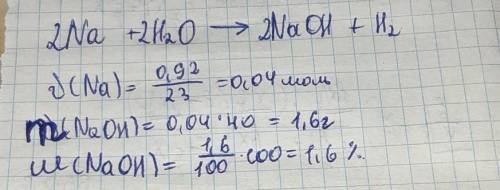 2Na + 2H₂O → 2NaOH + H₂
ν(Na) = 0,92/23 = 0,04 моль
m(NaOH) = 0,04 · 40 = 1,6г
ω(NaOH) = 1,6/100 · 100 = 1,6 %.